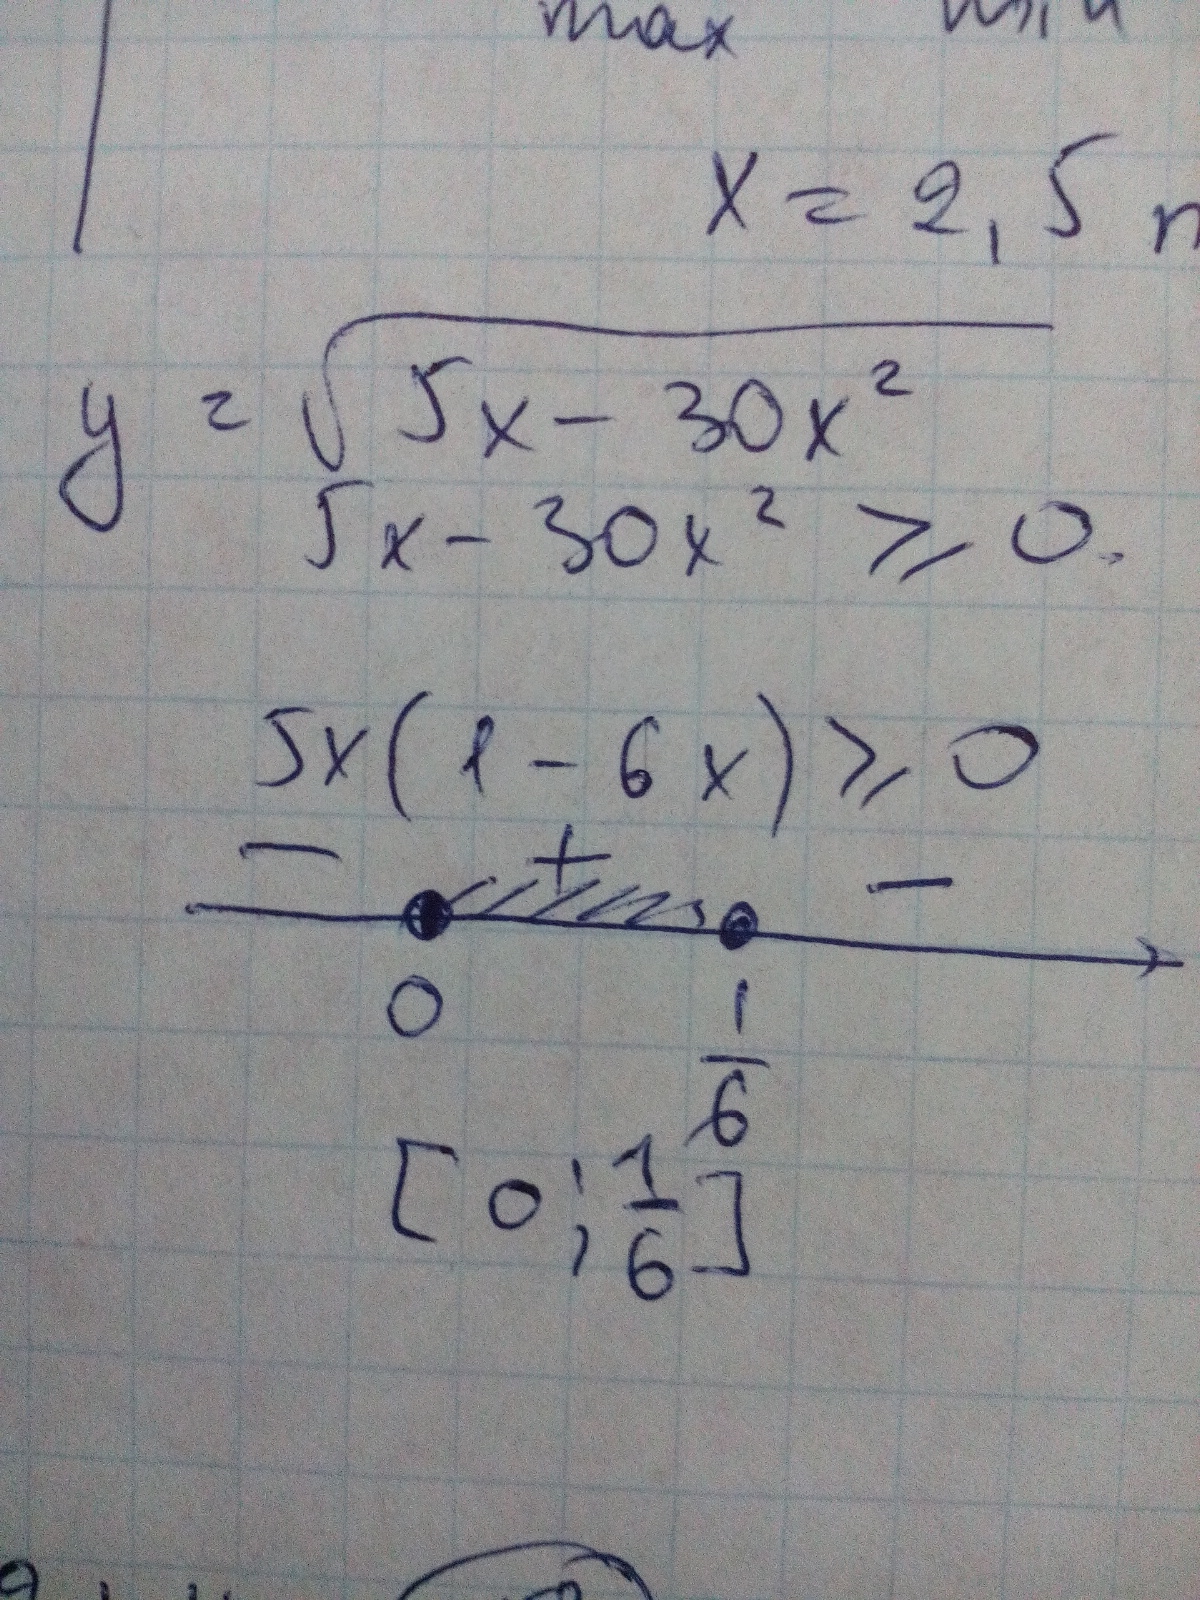 max min
x = 2,5
y = √5x - 30x²
5x - 30x² ⩾ 0.
5x(1 - 6x) ⩾ 0
- + -
0 1/6
[0; 1/6]